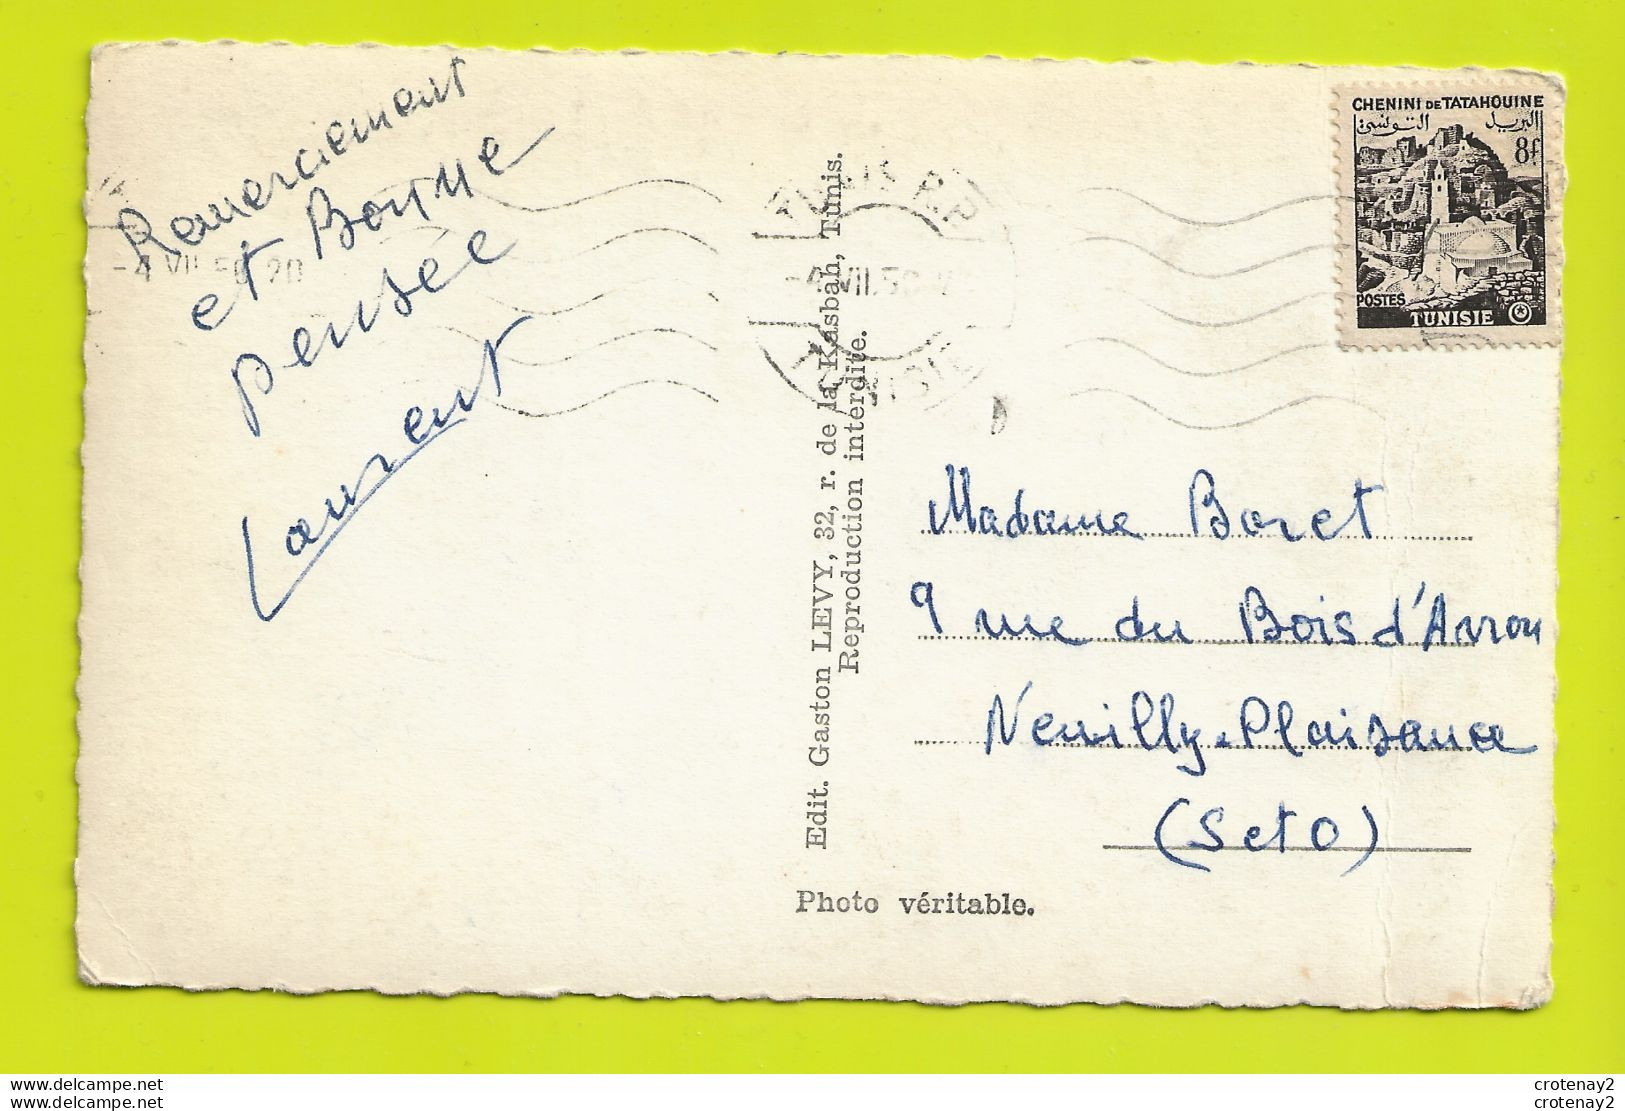 Remerciement
et Bonne
pensée
Laurent
CHENINI DE TATAHOUINE
البريد التونسي
8f
POSTES
TUNISIE
TUNIS R.P
-4 VII.5
TUNISIE
-4 VII 5 20
Edit. Gaston LEVY, 32, r. de la Kasbah, Tunis.
Reproduction interdite.
Madame Boret
9 rue du Bois d'Avron
Neuilly-Plaisance
(S et O)
Photo véritable.
delcampe.net
delcampe.net
crotenay2
crotenay2